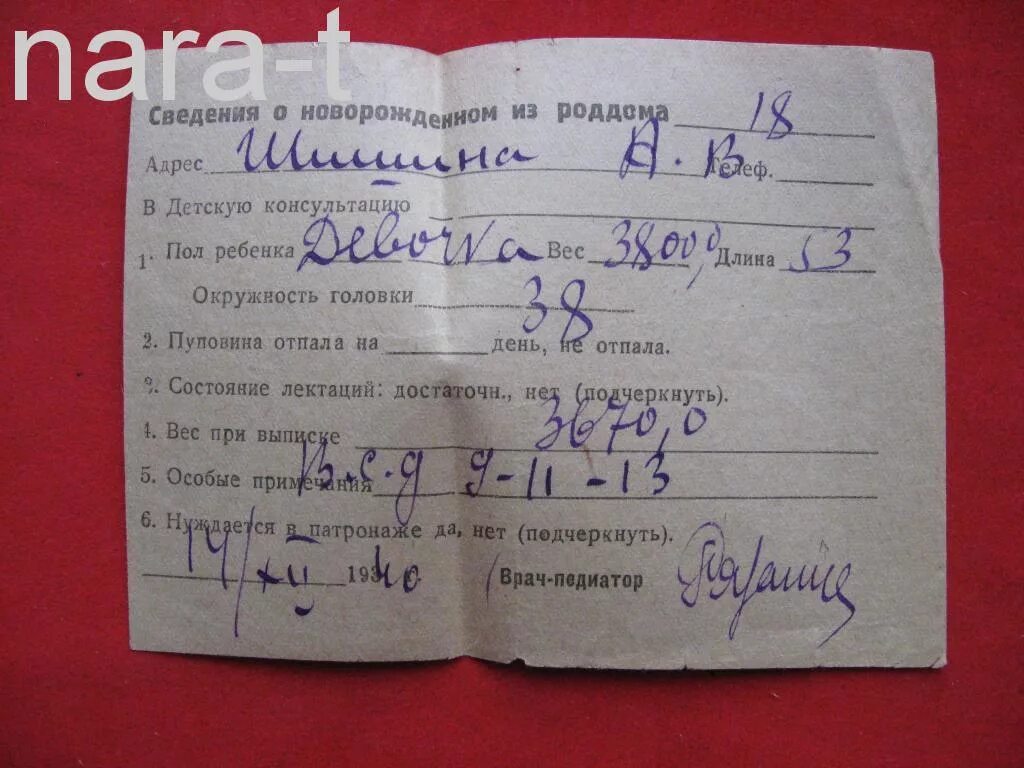 nara-t
Сведения о новорожденном из роддома 18
Адрес Шишина А. В Телеф.
В Детскую консультацию
1. Пол ребенка Девочка Вес 3800,0 Длина 53
Окружность головки 38
2. Пуповина отпала на день, не отпала.
3. Состояние лектаций: достаточн., нет (подчеркнуть).
4. Вес при выписке 3670,0
5. Особые примечания В.С.Д 9-11-13
6. Нуждается в патронаже да, нет (подчеркнуть).
14/XII 1940 г. Врач-педиатор